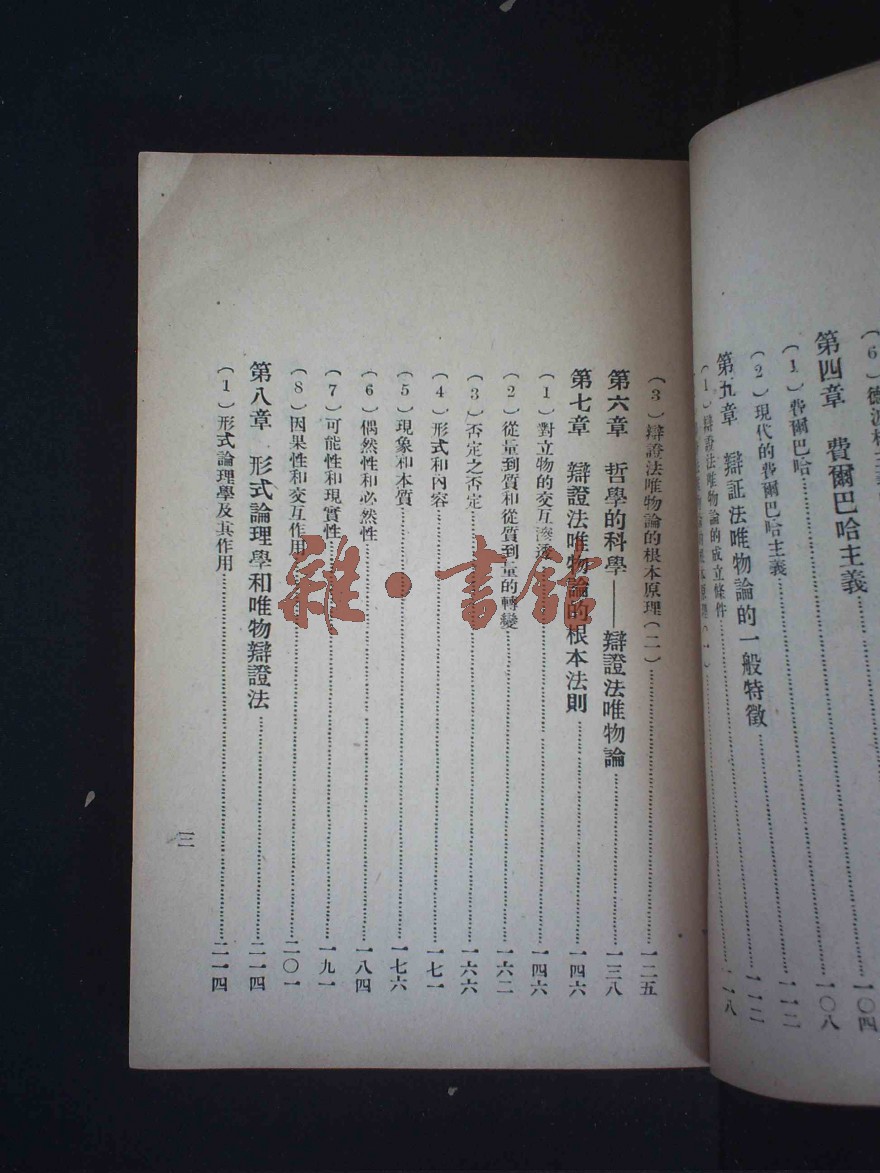 (6)德波林主義……一〇四
第四章 費爾巴哈主義……一〇八
(1)費爾巴哈……一一二
(2)現代的費爾巴哈主義……一一二
第九章 辯証法唯物論的一般特徵……一一八
(1)辯證法唯物論的成立條件
(3)辯證法唯物論的根本原理(二)……一二五
第六章 哲學的科學——辯證法唯物論……一三八
第七章 辯證法唯物論的根本法則……一四六
(1)對立物的交互滲透……一四六
(2)從量到質和從質到量的轉變……一六二
(3)否定之否定……一六六
(4)形式和內容……一七一
(5)現象和本質……一七六
(6)偶然性和必然性……一八四
(7)可能性和現實性……一九一
(8)因果性和交互作用……二〇一
第八章 形式論理學和唯物辯證法……二一四
(1)形式論理學及其作用……二一四
三
雜·書館